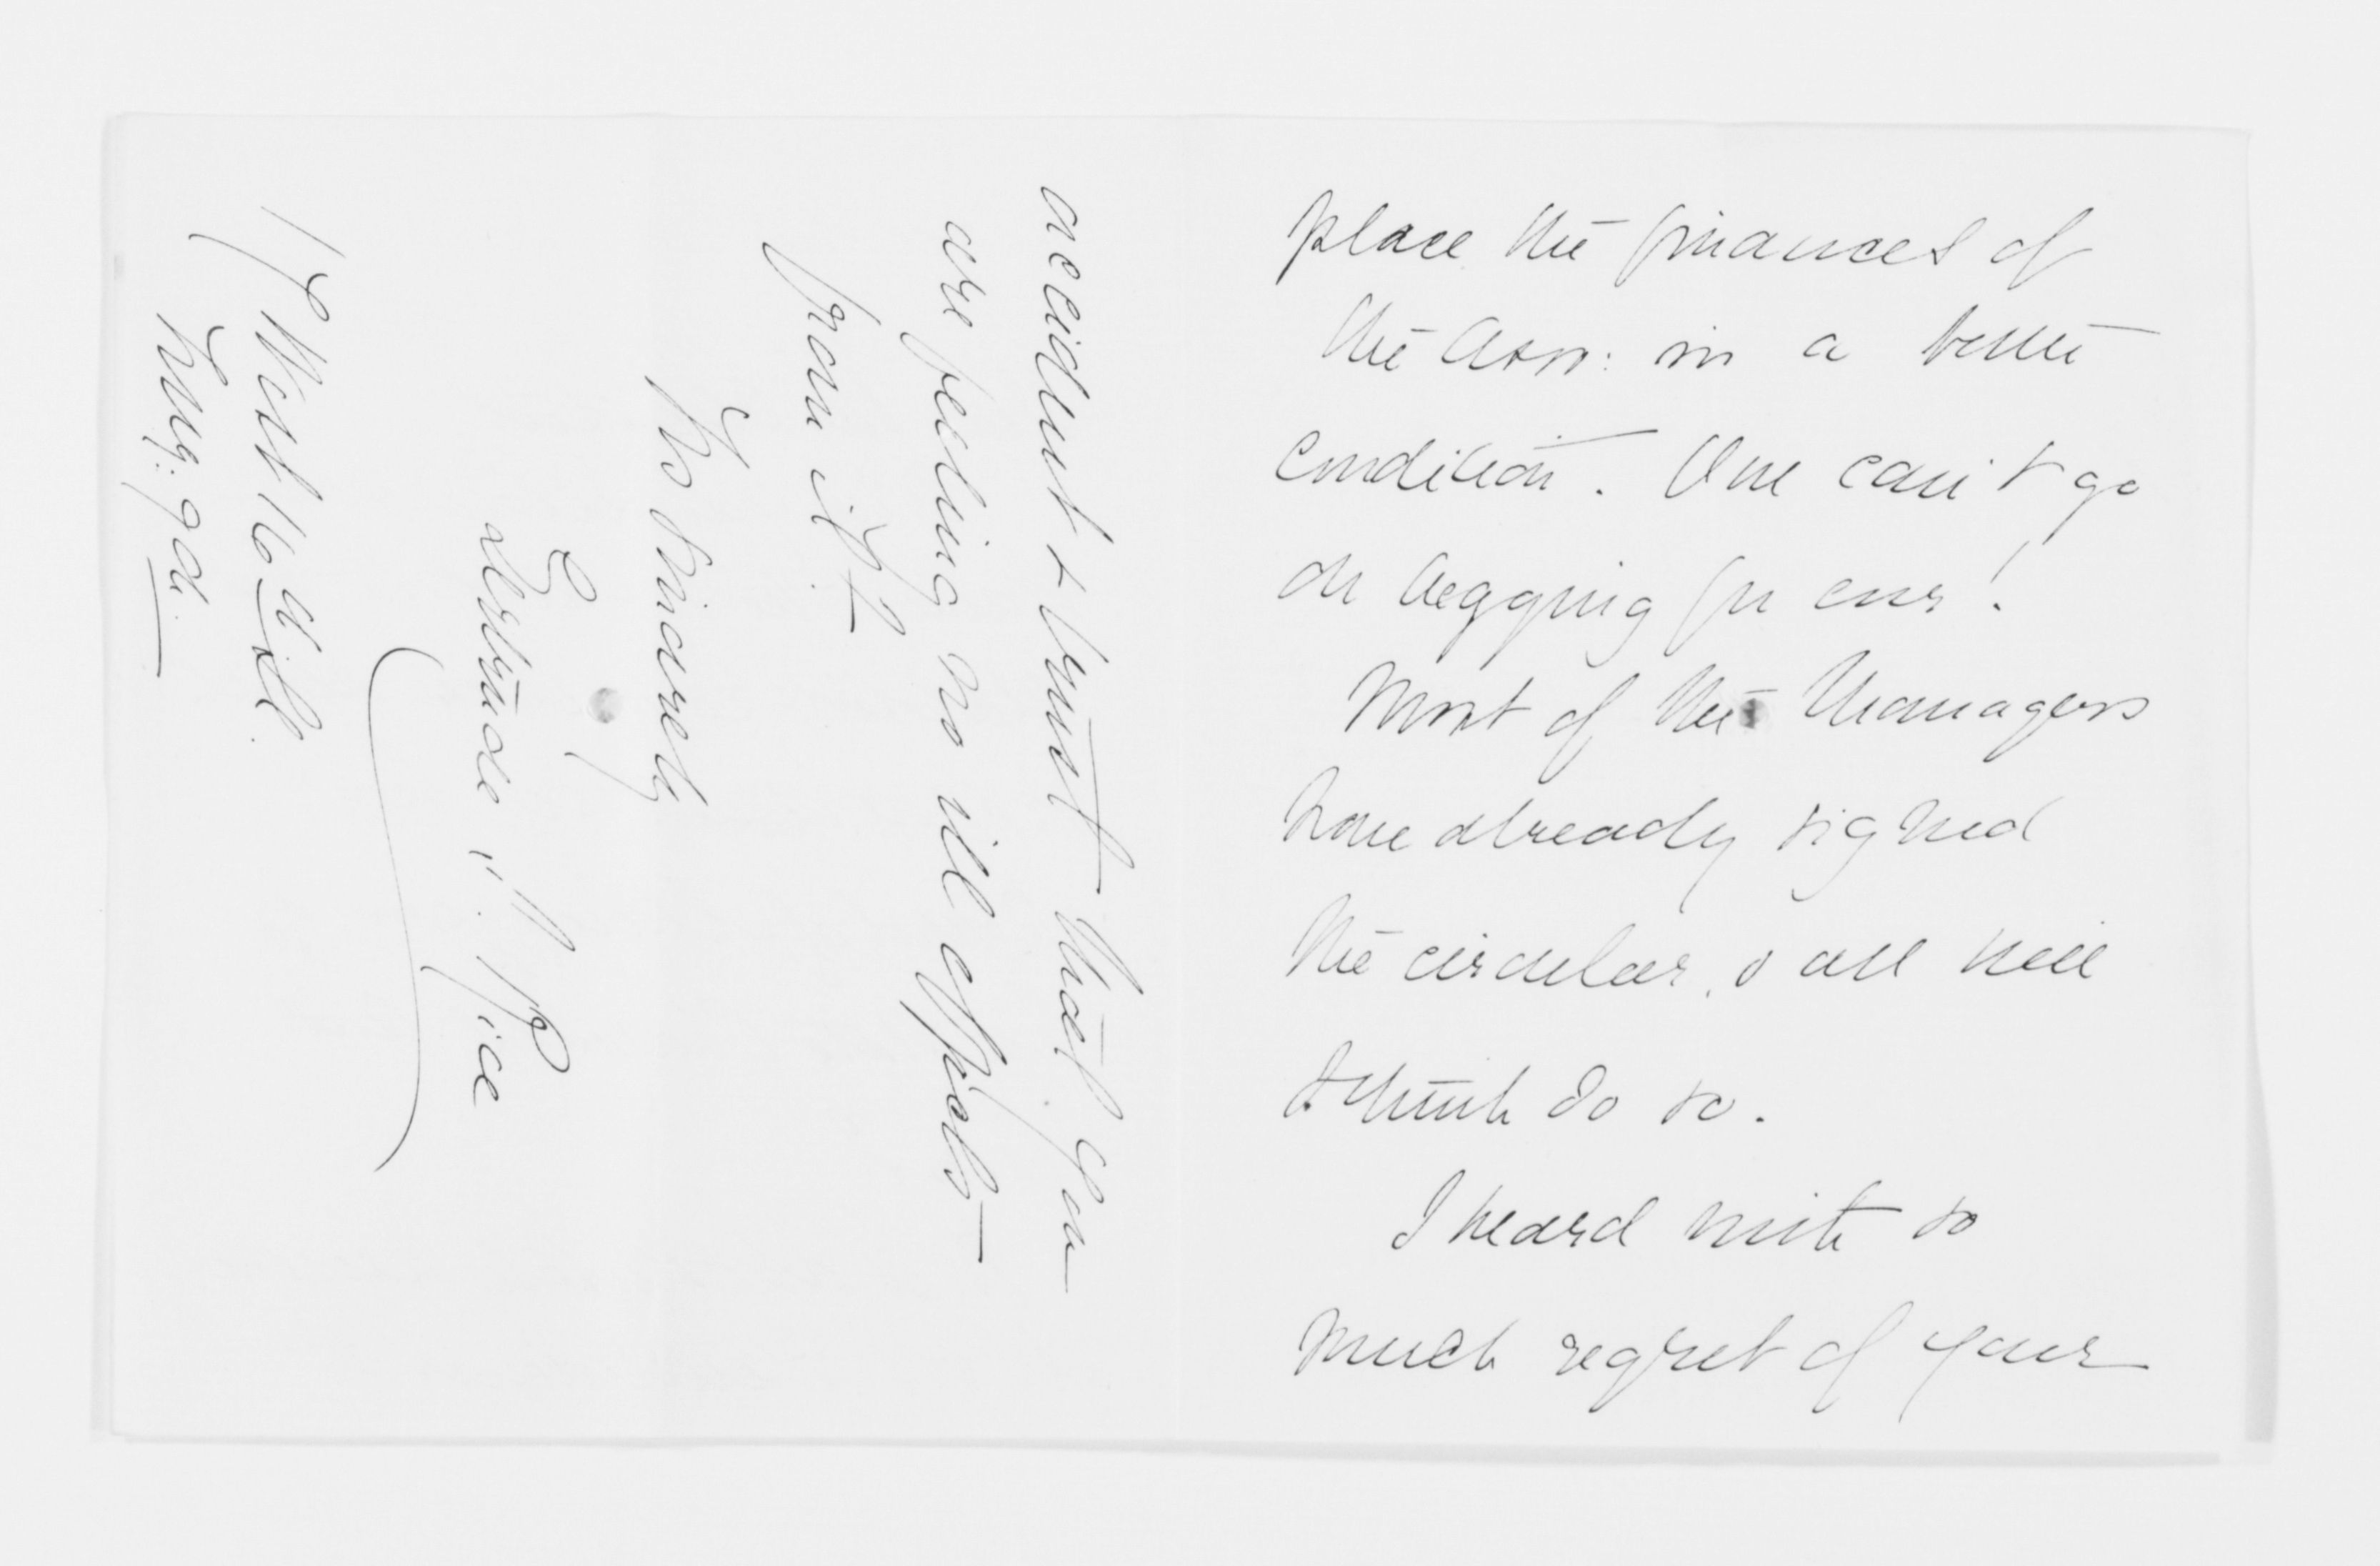 place the finances of
the Assn: in a better
condition. One can't go
on begging for ever!
Most of the Managers
have already signed
the circular, & all will
I think do so.
I heard with so
much regret of your
accident & trust that you
are feeling no ill effects
from it.
Yrs sincerely
Gertrude S. Rice
17 West 16 St
Aug: 9th